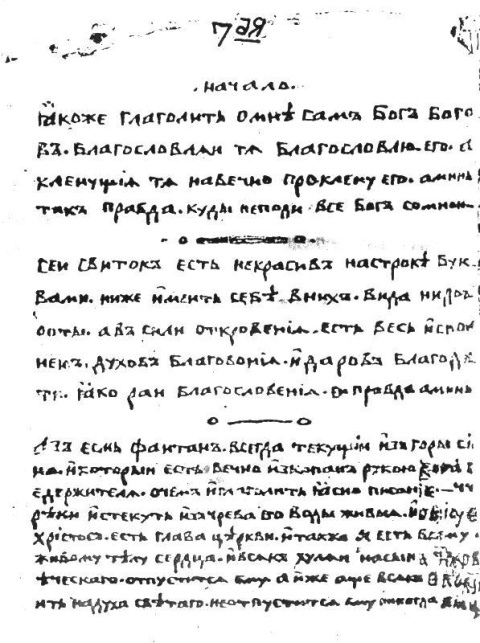 7 дя
.начало.
Якоже глаголитъ омнѣ самъ Богъ Бого
въ. Благословляи тя благословлю. его. а
кленущія тя навечно прокляну его. аминь
такъ правда. куды неподи. все Богъ сомною.
сеи свитокъ есть некрасивъ настрокѣ бук
вами. ниже имеитъ себѣ. внихъ. вида
авъ сили откровенія. есть весь испол
ненъ. духовъ благовонія. идаровъ благода
ти. яко раи благословенія. правда аминь
Азъ есмь фантанъ. всегда текущіи изъ горы сі
на. икоторыи есть вечно ископанъ рукою
едержителя. очемъ иглаголитъ ясно писаніе.
рѣки истекутъ изъчрева его воды живыя.
христосъ. есть глава церкви. итакже я есть всему.
живому тѣлу сердца. ивсякъ хулаи насына
ѣческаго. отпустится ему аиже аще всякъ
итъ надуха святаго. неотпустится ему никогда